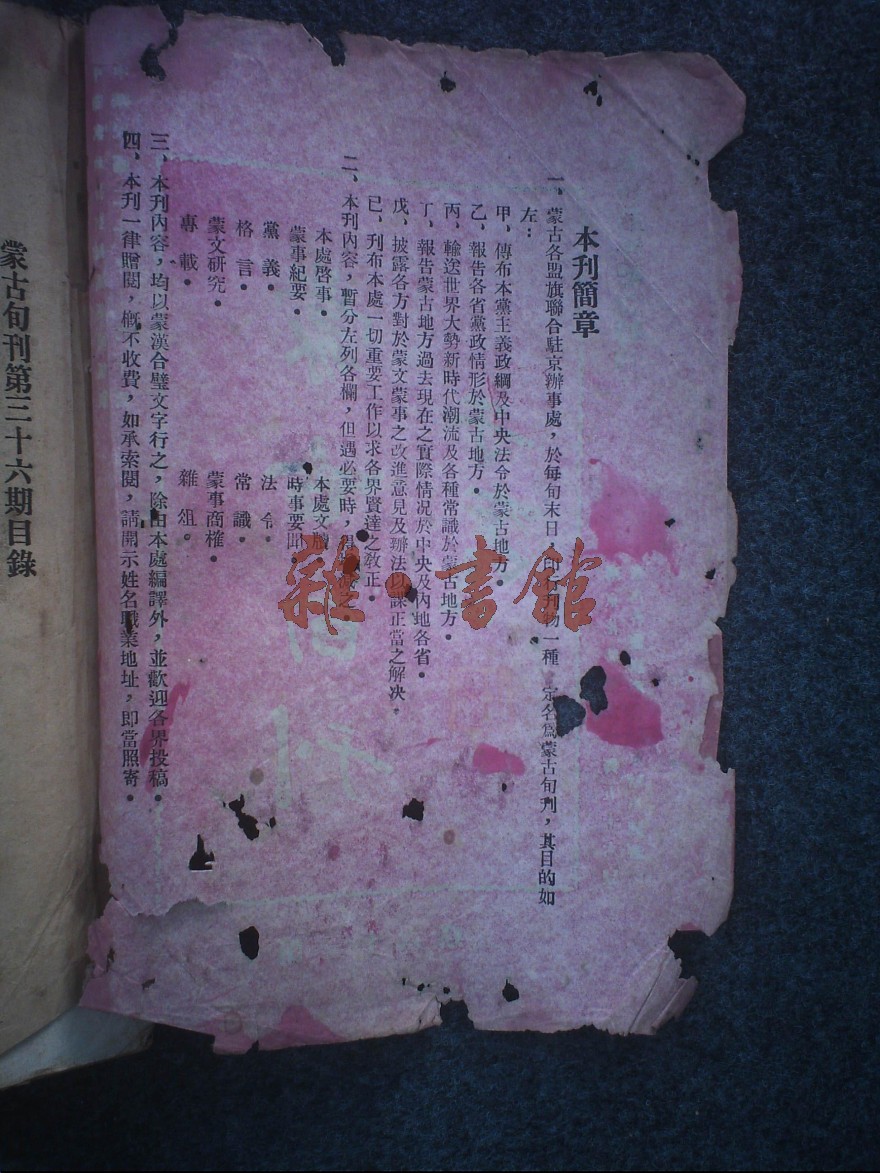 本刊簡章
一、蒙古各盟旗聯合駐京辦事處，於每旬末日，印行刊物一種 定名爲蒙古旬刊，其目的如
左：
甲、傳布本黨主義政綱及中央法令於蒙古地方。
乙、報告各省黨政情形於蒙古地方。
丙、輸送世界大勢新時代潮流及各種常識於蒙古地方。
丁、報告蒙古地方過去現在之實際情况於中央及內地各省。
戊、披露各方對於蒙文蒙事之改進意見及辦法以謀正當之解决。
已、刋布本處一切重要工作以求各界賢達之敎正。
二、本刋內容，暫分左列各欄，但遇必要時，得
本處啓事。 本處文牘
蒙事紀要。 時事要聞
黨義。 法令。
格言。 常識。
蒙文研究。 蒙事商榷。
專載。 雜俎。
三、本刋內容，均以蒙漢合璧文字行之，除由本處編譯外，並歡迎各界投稿。
四、本刋一律贈閱，槪不收費，如承索閱，請開示姓名職業地址，即當照寄。
蒙古旬刊第三十六期目錄
雜·書館